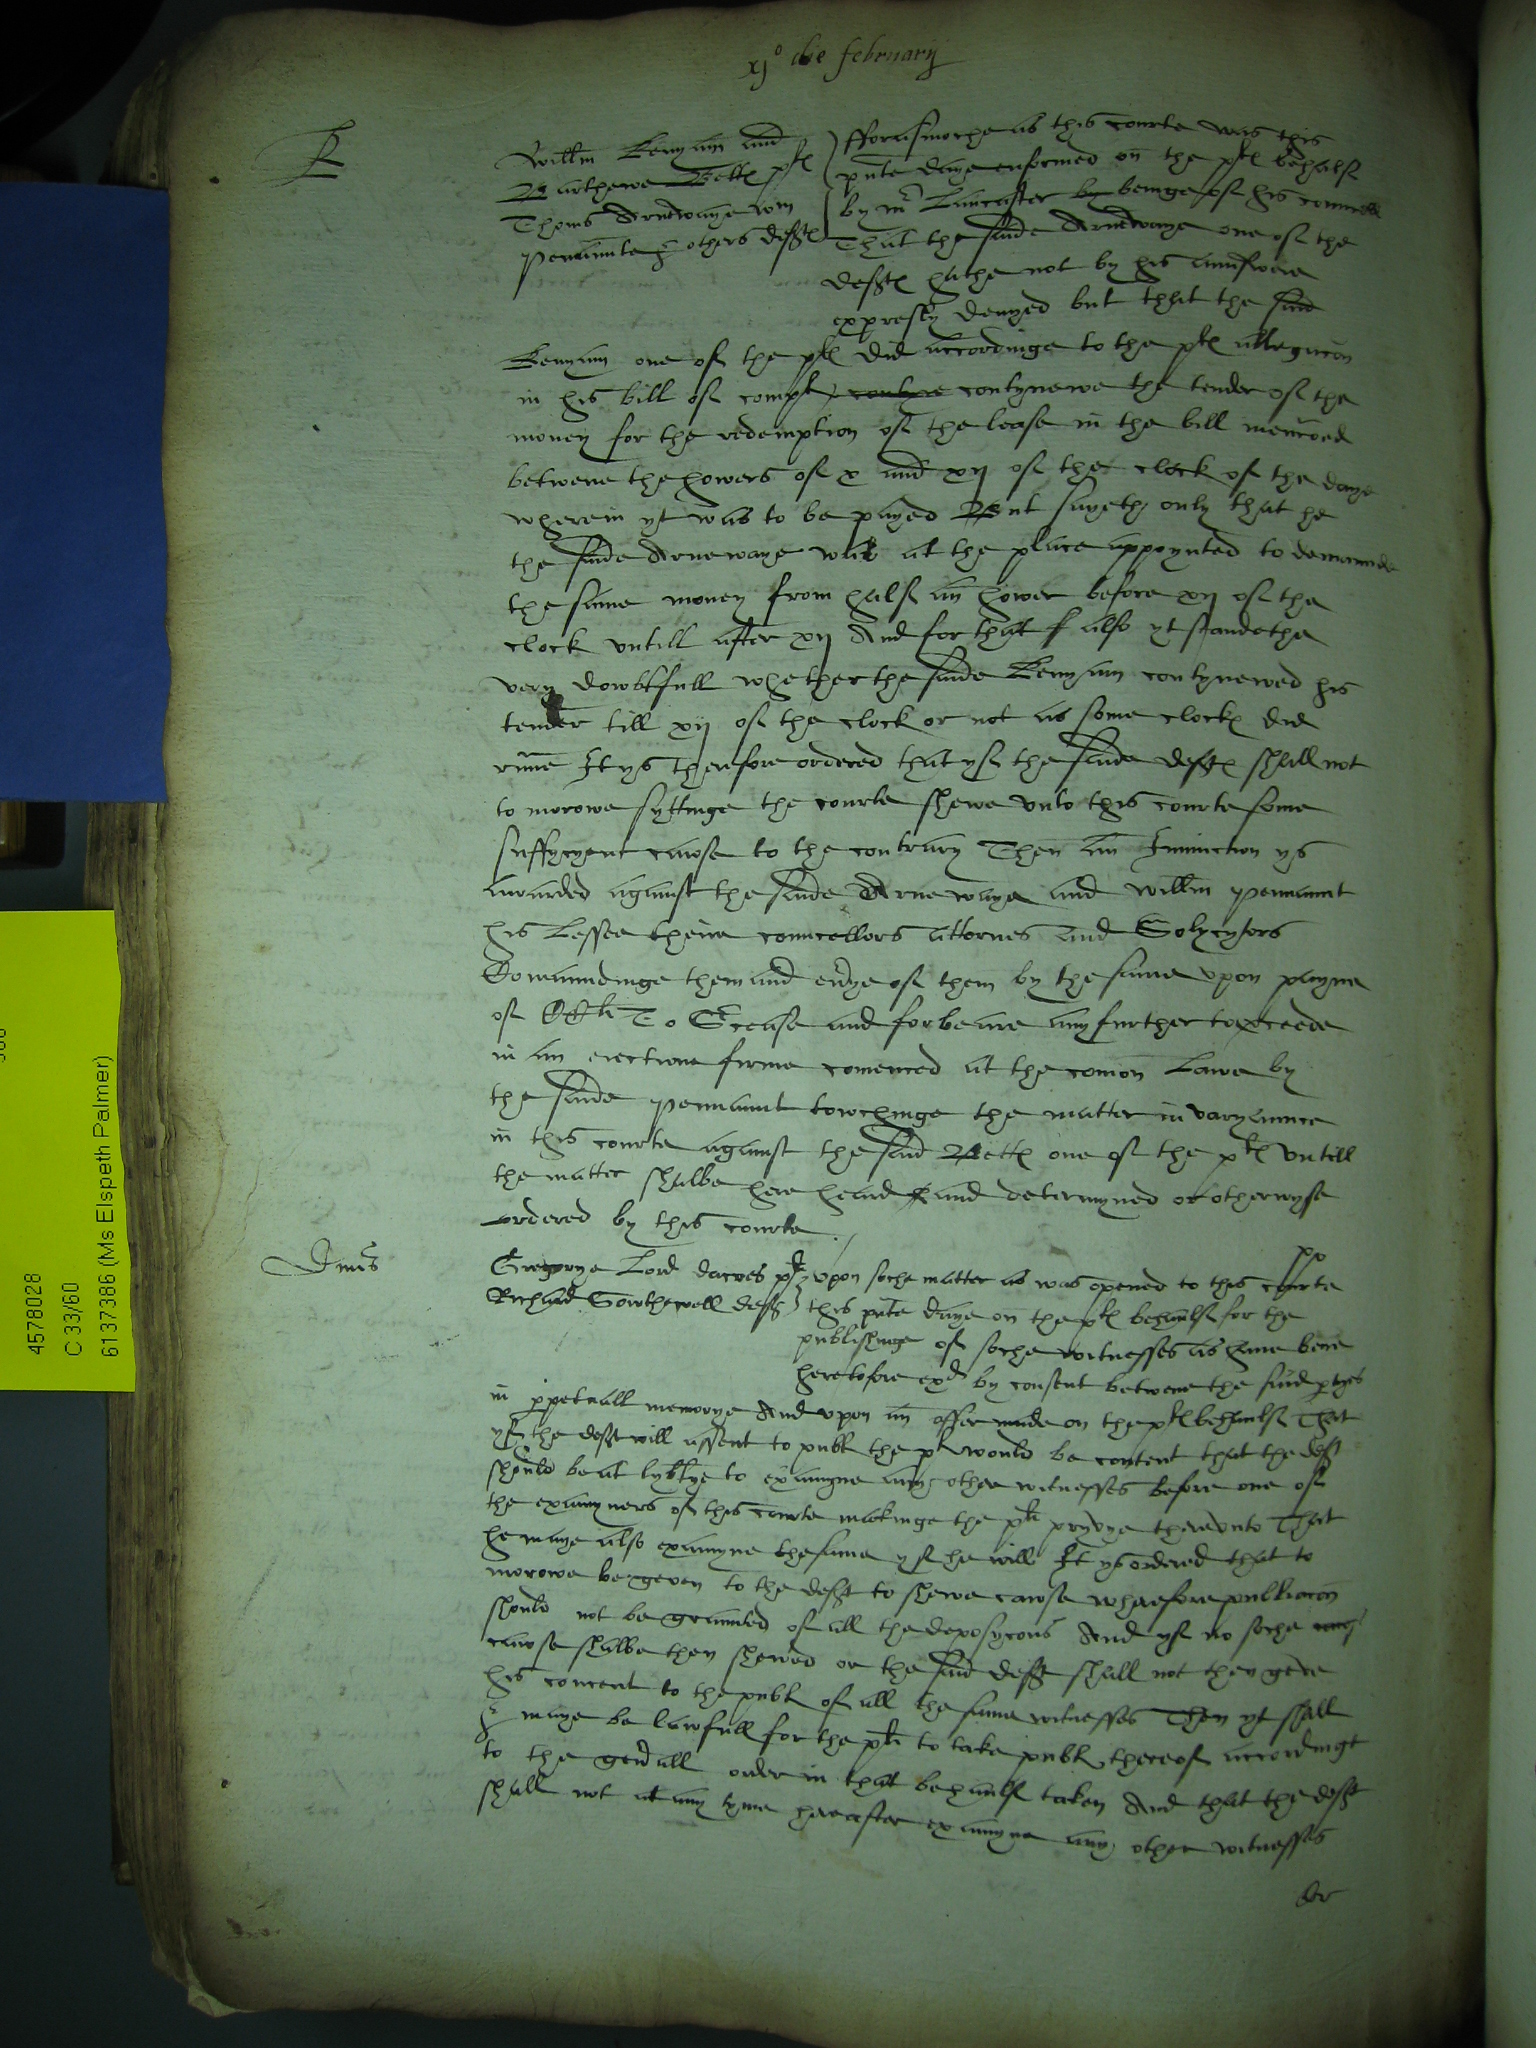 xjo die february
Willm Kenyam and
Barthewe Bette plt
Thoms Arnewaye Wm
Pennaunte & others defts
fforasmoche as this courte was this
pnte daye enformed on the plt behalf
by mr Lancaster by beinge of his councell
That the saide Arnewaye one of the
defts hathe not by his aunswere
expresly denyed but that the said
Kenyam one of the plt did accordinge to the plt allegacon
in his bill of complt contynewe the tender of the
money for the redemption of the lease in the bill mencoed
betwene the howers of x and xij of the clock of the daye
wherein yt was to be payed But sayeth only that he
the saide Arnewaye was at the place appoynted to demaunde
the same money from half an hower before xij of the
clock untill after xij And for that also yt standethe
very dowbtfull whether the saide Kenyam contynewed his
tender till xij of the clock or not as some clocks did
runne It ys therefore ordered that yf the saide defts shall not
to morowe syttinge the courte shewe unto this courte some
suffycyent cawse to the contrary Then an Iniunction ys
awarded against the saide Arnewaye and Willm Pennaunt
his Lessee theire councellors attornes and Solycytors
Comaundinge them and evrye of them by the same upon payne
of CCli To Srcease and forbeare any further to pceede
in an eiectione firme comenced at the comon Lawe by
the saide Pennaunt towchinge the matter in varyaunce
in this courte against the said Bette one of the plt untill
the matter shalbe here heard and determyned or otherwyse
ordered by this courte
Dnus
Gregorye Lord dacres plt
Richard Sowthewell deft
po
upon soche matter as was opened to this courte
this pnte daye on the plt behaulf for the
publishinge of soche witnesses as have bene
heretofore exd by consent betwene the said ptyes
in ppetuall memorye And upon an offer made on the plt behaulf That
yf the deft will assent to publ the plt would be content that the deft
should be at lybtye to examyne any other witnesses before one of
the examyners of this courte makinge the plt pryvye thereunto That
he maye also examyne the same yf he will It ys ordered that to
morowe be geven to the deft to shewe cawse wherefore publicacon
should not be graunted of all the deposycons And yf no soche
cawse shalbe then shewed or the said deft shall not then geve
his concent to the publ of all the same witnesses Then yt shall
& maye be lawfull for the plt to take publ thereof accordinge
to the genrall order in that behaulf taken And that the deft
shall not at any tyme hereafter examyne any other witnesses
or
4578028
C 33/60
6137386 (Ms Elspeth Palmer)